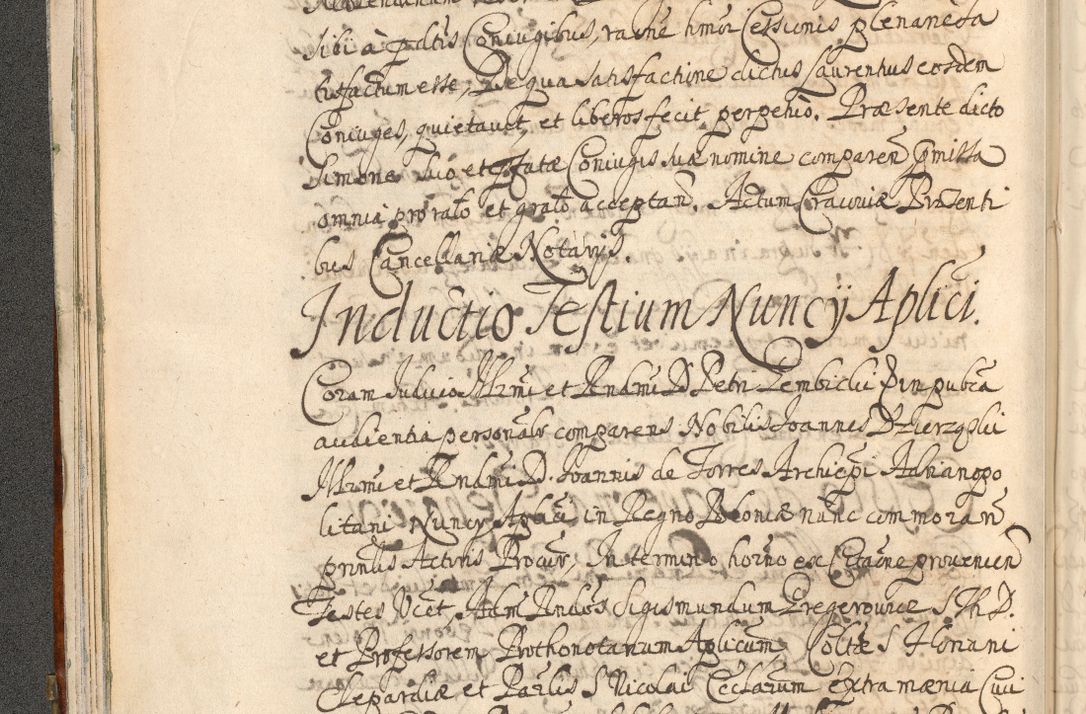 sibi à pdtis Coniugibus, raōne hmōi Cessionis plenarie sa
tisfactum esse, De qua satisfactione dictus Laurentius eosdem
Coniuges, quietavit, et liberos fecit perpetuò. Præsente dicto
Simone suó et pfatæ Coniugis suæ nomine comparen̄ pmissa
omnia pro rato et grato acceptan̄. Actum Cracoviæ Præsenti
bus Cancellariæ Notarijs.
Inductio Testium Nuncÿ Aplici.
Coram Judicio Illrmi et Rndmi D Petri Gembicki in pubca
audientia personalr comparens Nobilis Joannes Dzierzqski
Illrmi et Rndmi D. Joannis de Torres Archiepi Adrianopo
litani Nuncÿ Aplici in Regno Poloniæ nunc commoran̄
prinlis Actoris Procur, In termino horno ex Citaōne provenien̄
Testes Vcet, Adm Rndos Sigismundum Gregerowicz S Th D.
et Professorem Prothonotarium Aplicum Coltæ S Floriani
Clepardiæ et Parlis S Nicolai Ecclarum extra mænia Civi